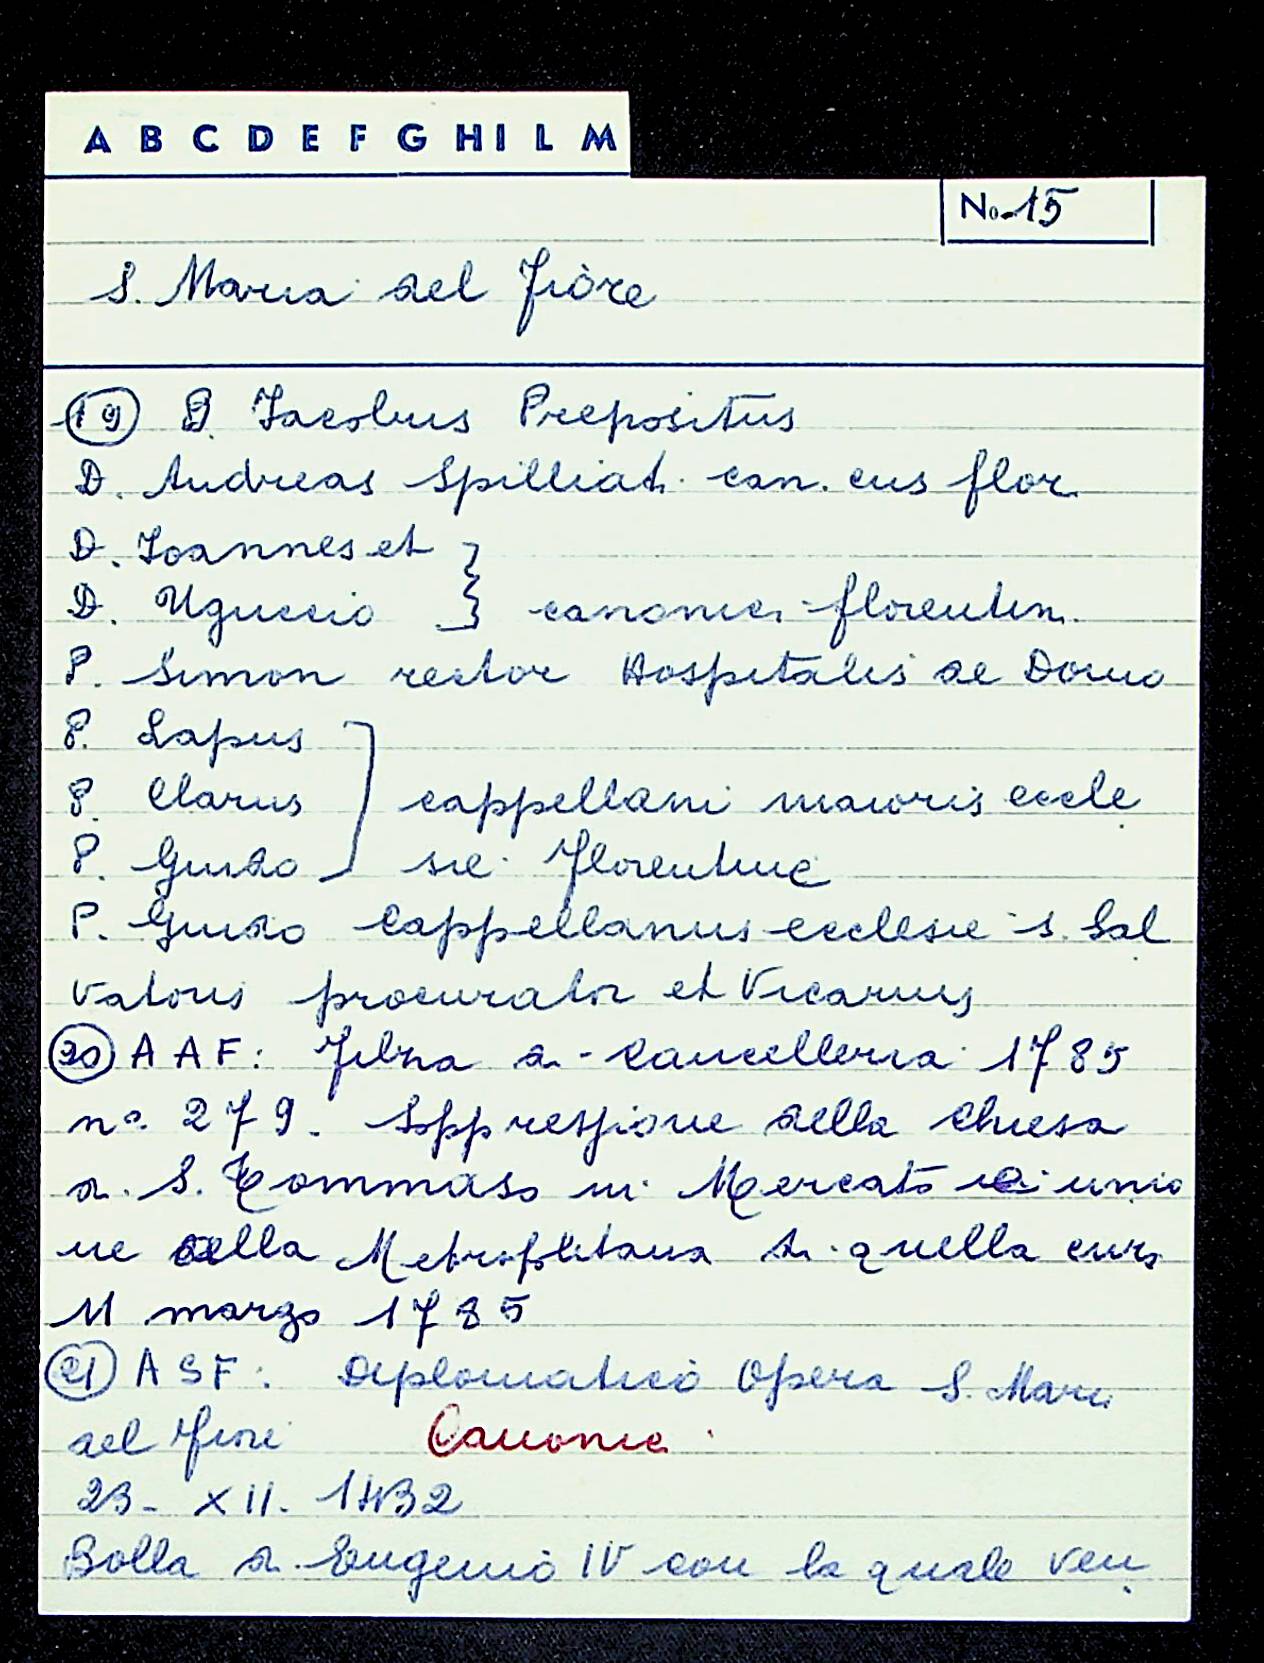 A B C D E F G H I L M
No. 15
S. Maria del Fiore
19 D. Iacobus Prepositus
D. Andreas Spilliat. can. cus flor.
D. Ioannes et
D. Uguccio } canonici florentin.
P. Simon rector Hospitalis de Domo
P. Lapus
P. Clarus } cappellani maioris eccle
P. Guido sie Florentine
P. Guido Cappellanus ecclesie S. Sal
vatoris procurator et Vicarius
20 A A F: Filza di Cancelleria 1785
nº 279. Soppressione della Chiesa
di S. Tommaso in Mercato e unio
ne alla Metropolitana di quella cura
11 marzo 1785
21 A S F: Diplomatico Opera S. Mari
del Fiore Canonici
23 - XII - 1432
Bolla di Eugenio IV con la quale ven